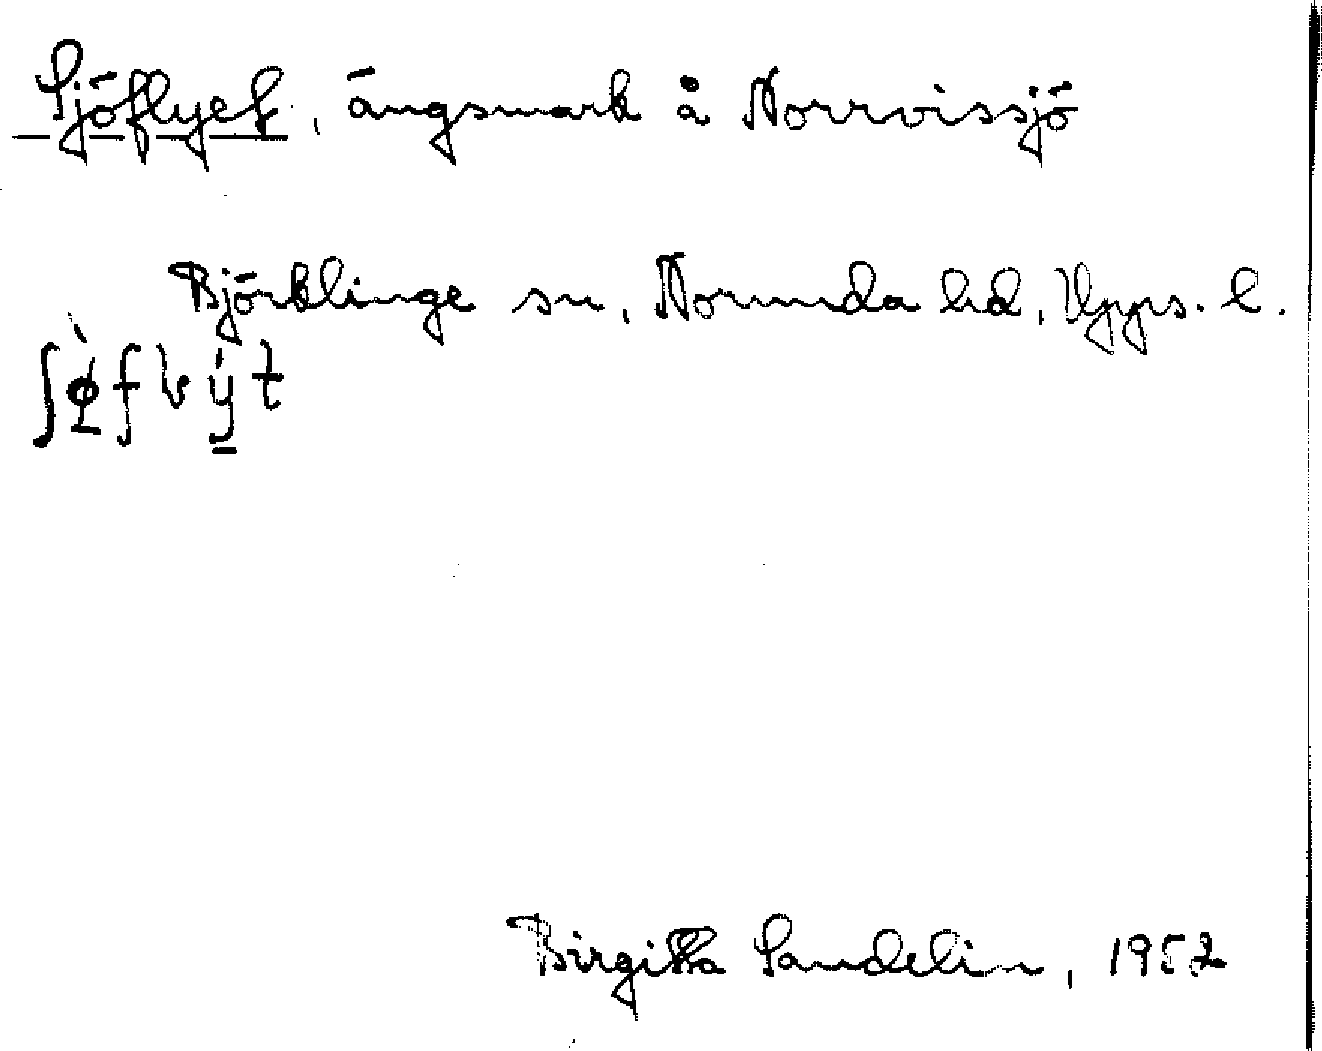 Sjöflyet, ängsmark å Norrvissjö
Björklinge sn, Norunda hd, Upps. l.
Birgitta Sandelin, 1952